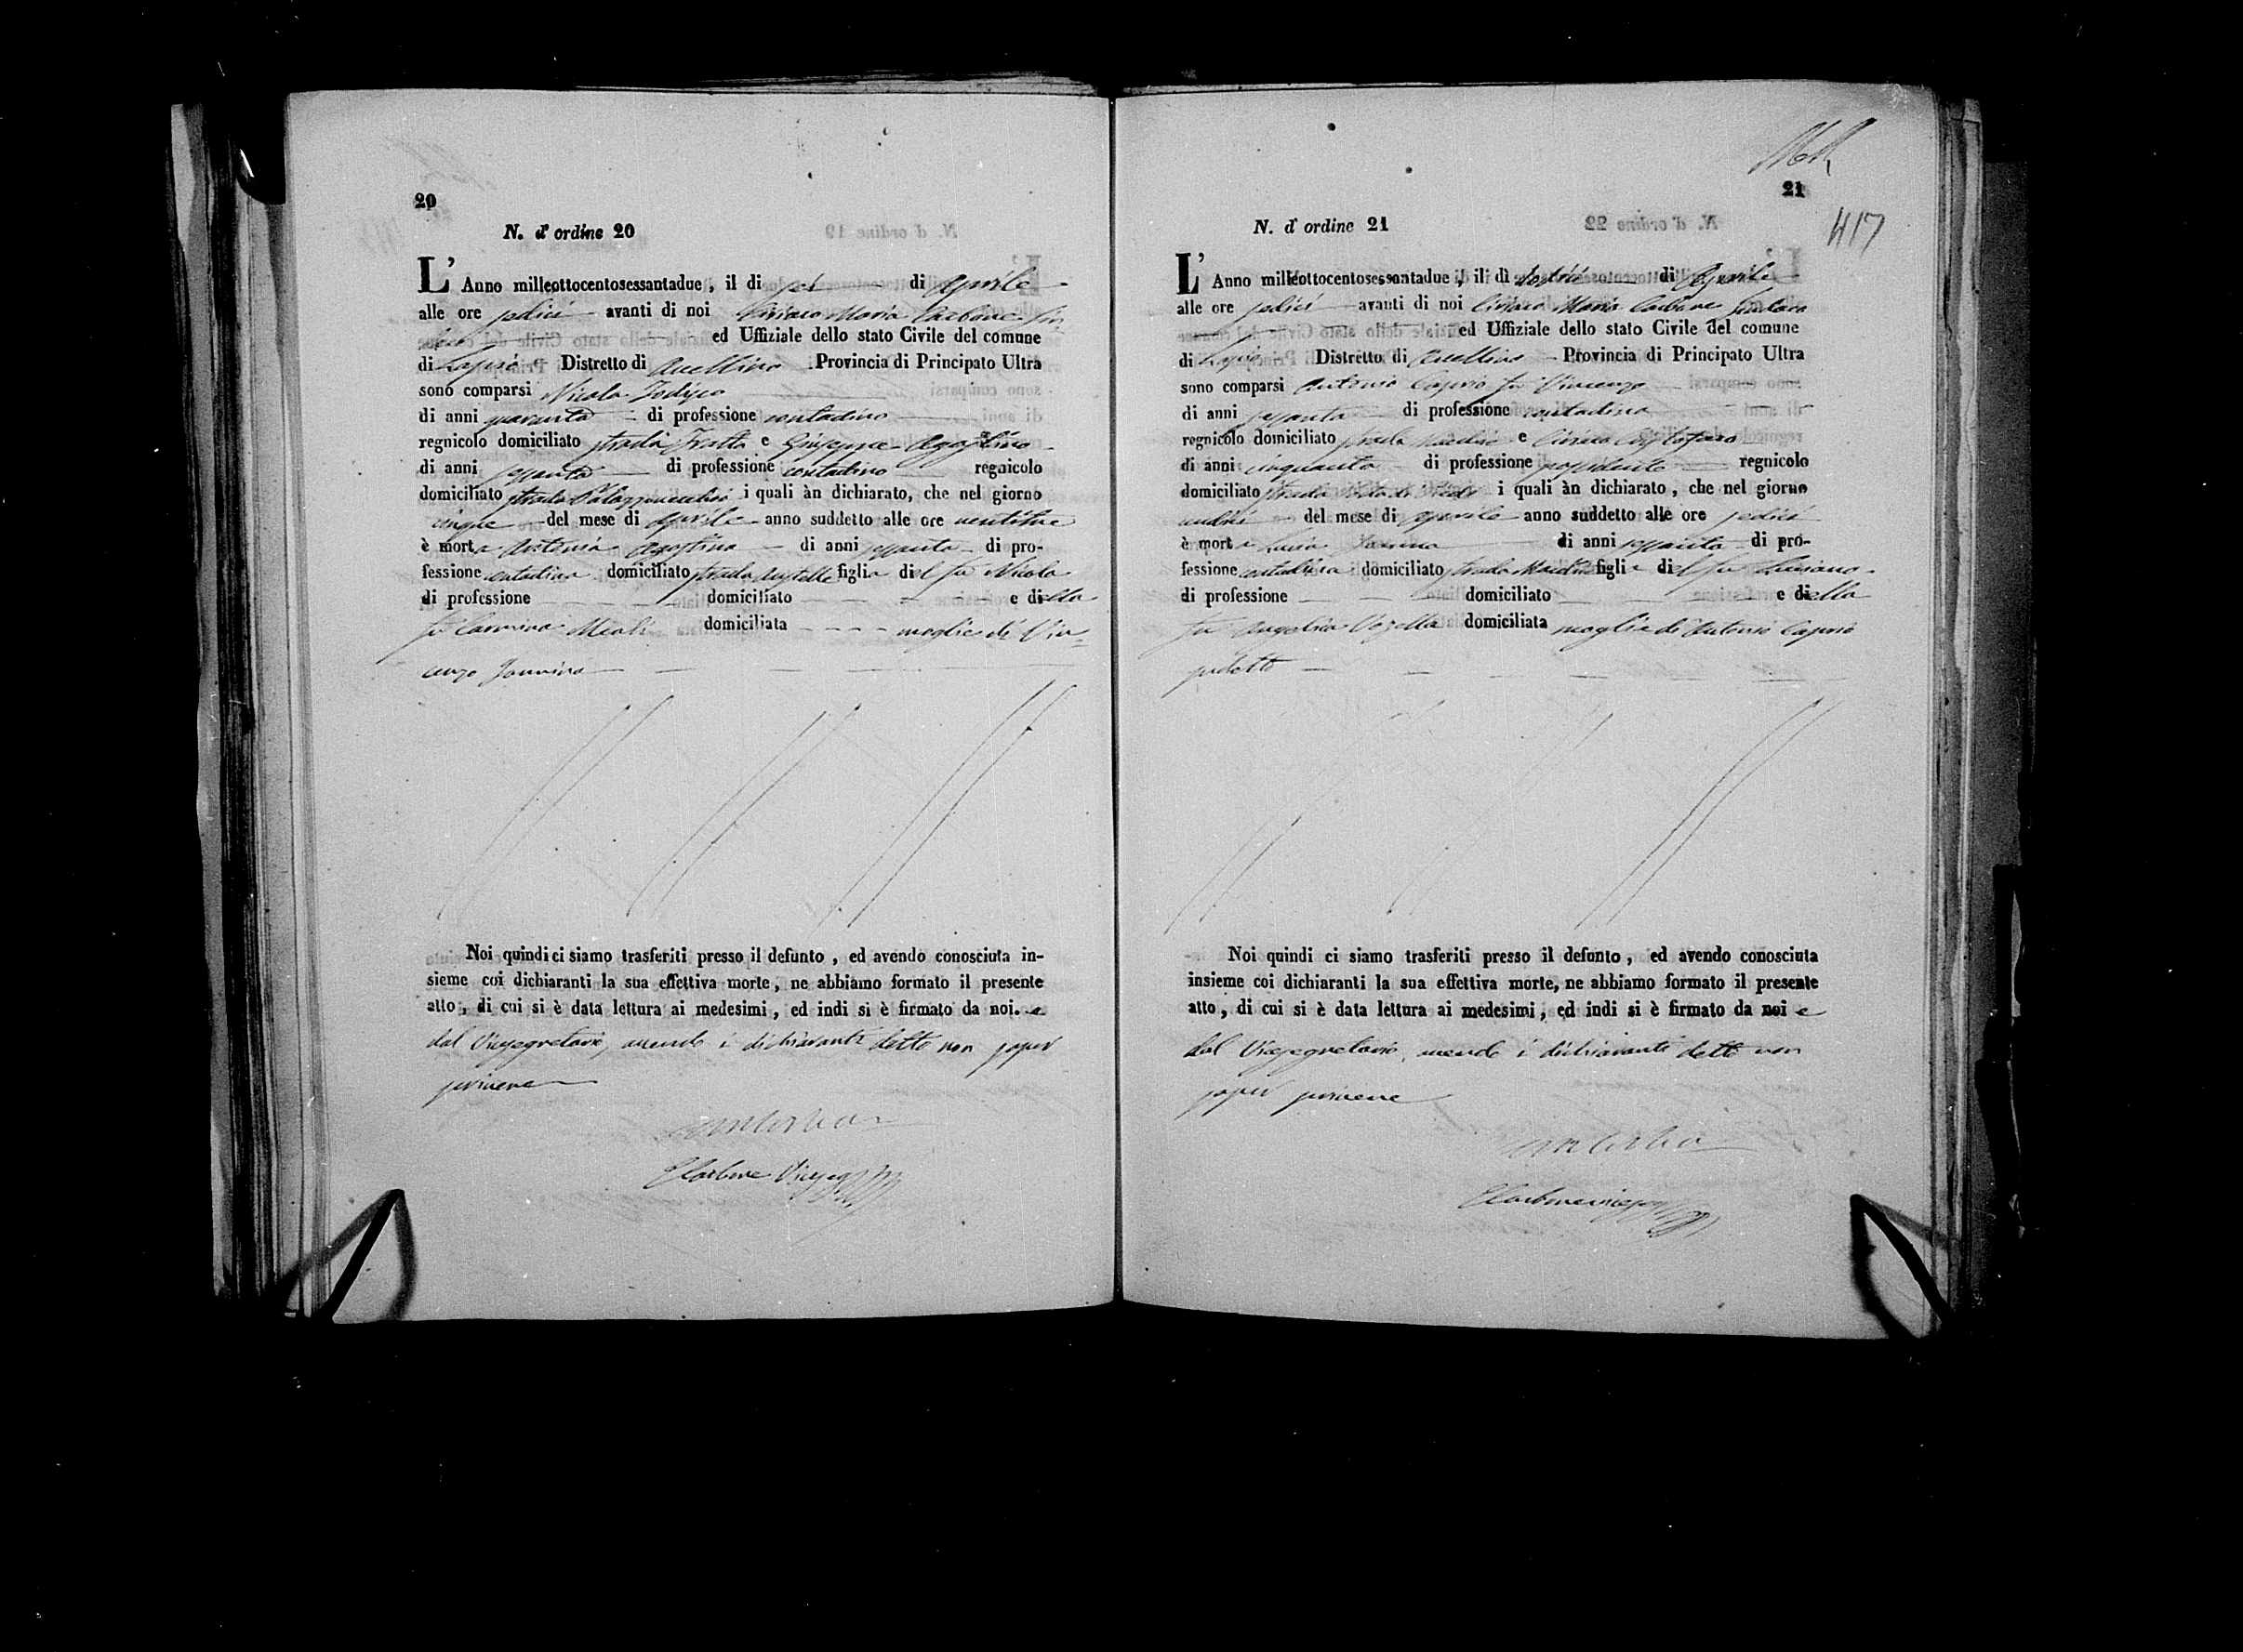 20
N. d' ordine 20
L' Anno milleottocentosessantadue, il di sei di Aprile
alle ore sedici avanti di noi Ciriaco Maria Carbone Sin-
daco ed Uffiziale dello stato Civile del comune
di Lapio Distretto di Avellino Provincia di Principato Ultra
sono comparsi Nicola
di anni quaranta di professione contadino
regnicolo domiciliato strada Fratta e Giuseppe Agostino
di anni sessanta di professione contadino regnicolo
domiciliato strada Palazzovecchio i quali àn dichiarato, che nel giorno
cinque del mese di Aprile anno suddetto alle ore ventitre
è morta Antonia Agostino di anni sessanta di pro-
fessione contadina domiciliato strada figlia del fu Nicola
di professione domiciliato e della
fu Carmina domiciliata moglie di Vin-
cenzo Jannino
Noi quindi ci siamo trasferiti presso il defunto, ed avendo conosciuta in-
sieme coi dichiaranti la sua effettiva morte, ne abbiamo formato il presente
atto, di cui si è data lettura ai medesimi, ed indi si è firmato da noi. e
dal Vicesegretario, avendo i dichiaranti detto non saper
scrivere
Carbone
21
417
N. d' ordine 21
L' Anno milleottocentosessantadue, il dì dodici di Aprile
alle ore sedici avanti di noi Ciriaco Maria Carbone Sindaco
ed Uffiziale dello stato Civile del comune
di Lapio Distretto di Avellino Provincia di Principato Ultra
sono comparsi Antonio Caprio fu Vincenzo
di anni sessanta di professione contadino
regnicolo domiciliato strada e Ciriaco
di anni cinquanta di professione possidente regnicolo
domiciliato strada i quali àn dichiarato, che nel giorno
undici del mese di aprile anno suddetto alle ore sedici
è morta Luisa di anni sessanta di pro-
fessione contadina domiciliato strada figlia del fu
di professione domiciliato e della
fu Angelica domiciliata moglie di Antonio Caprio
sudetto
Noi quindi ci siamo trasferiti presso il defonto, ed avendo conosciuta
insieme coi dichiaranti la sua effettiva morte, ne abbiamo formato il presente
atto, di cui si è data lettura ai medesimi, ed indi si è firmato da noi e
dal Vicesegretario, avendo i dichiaranti detto non
saper scrivere